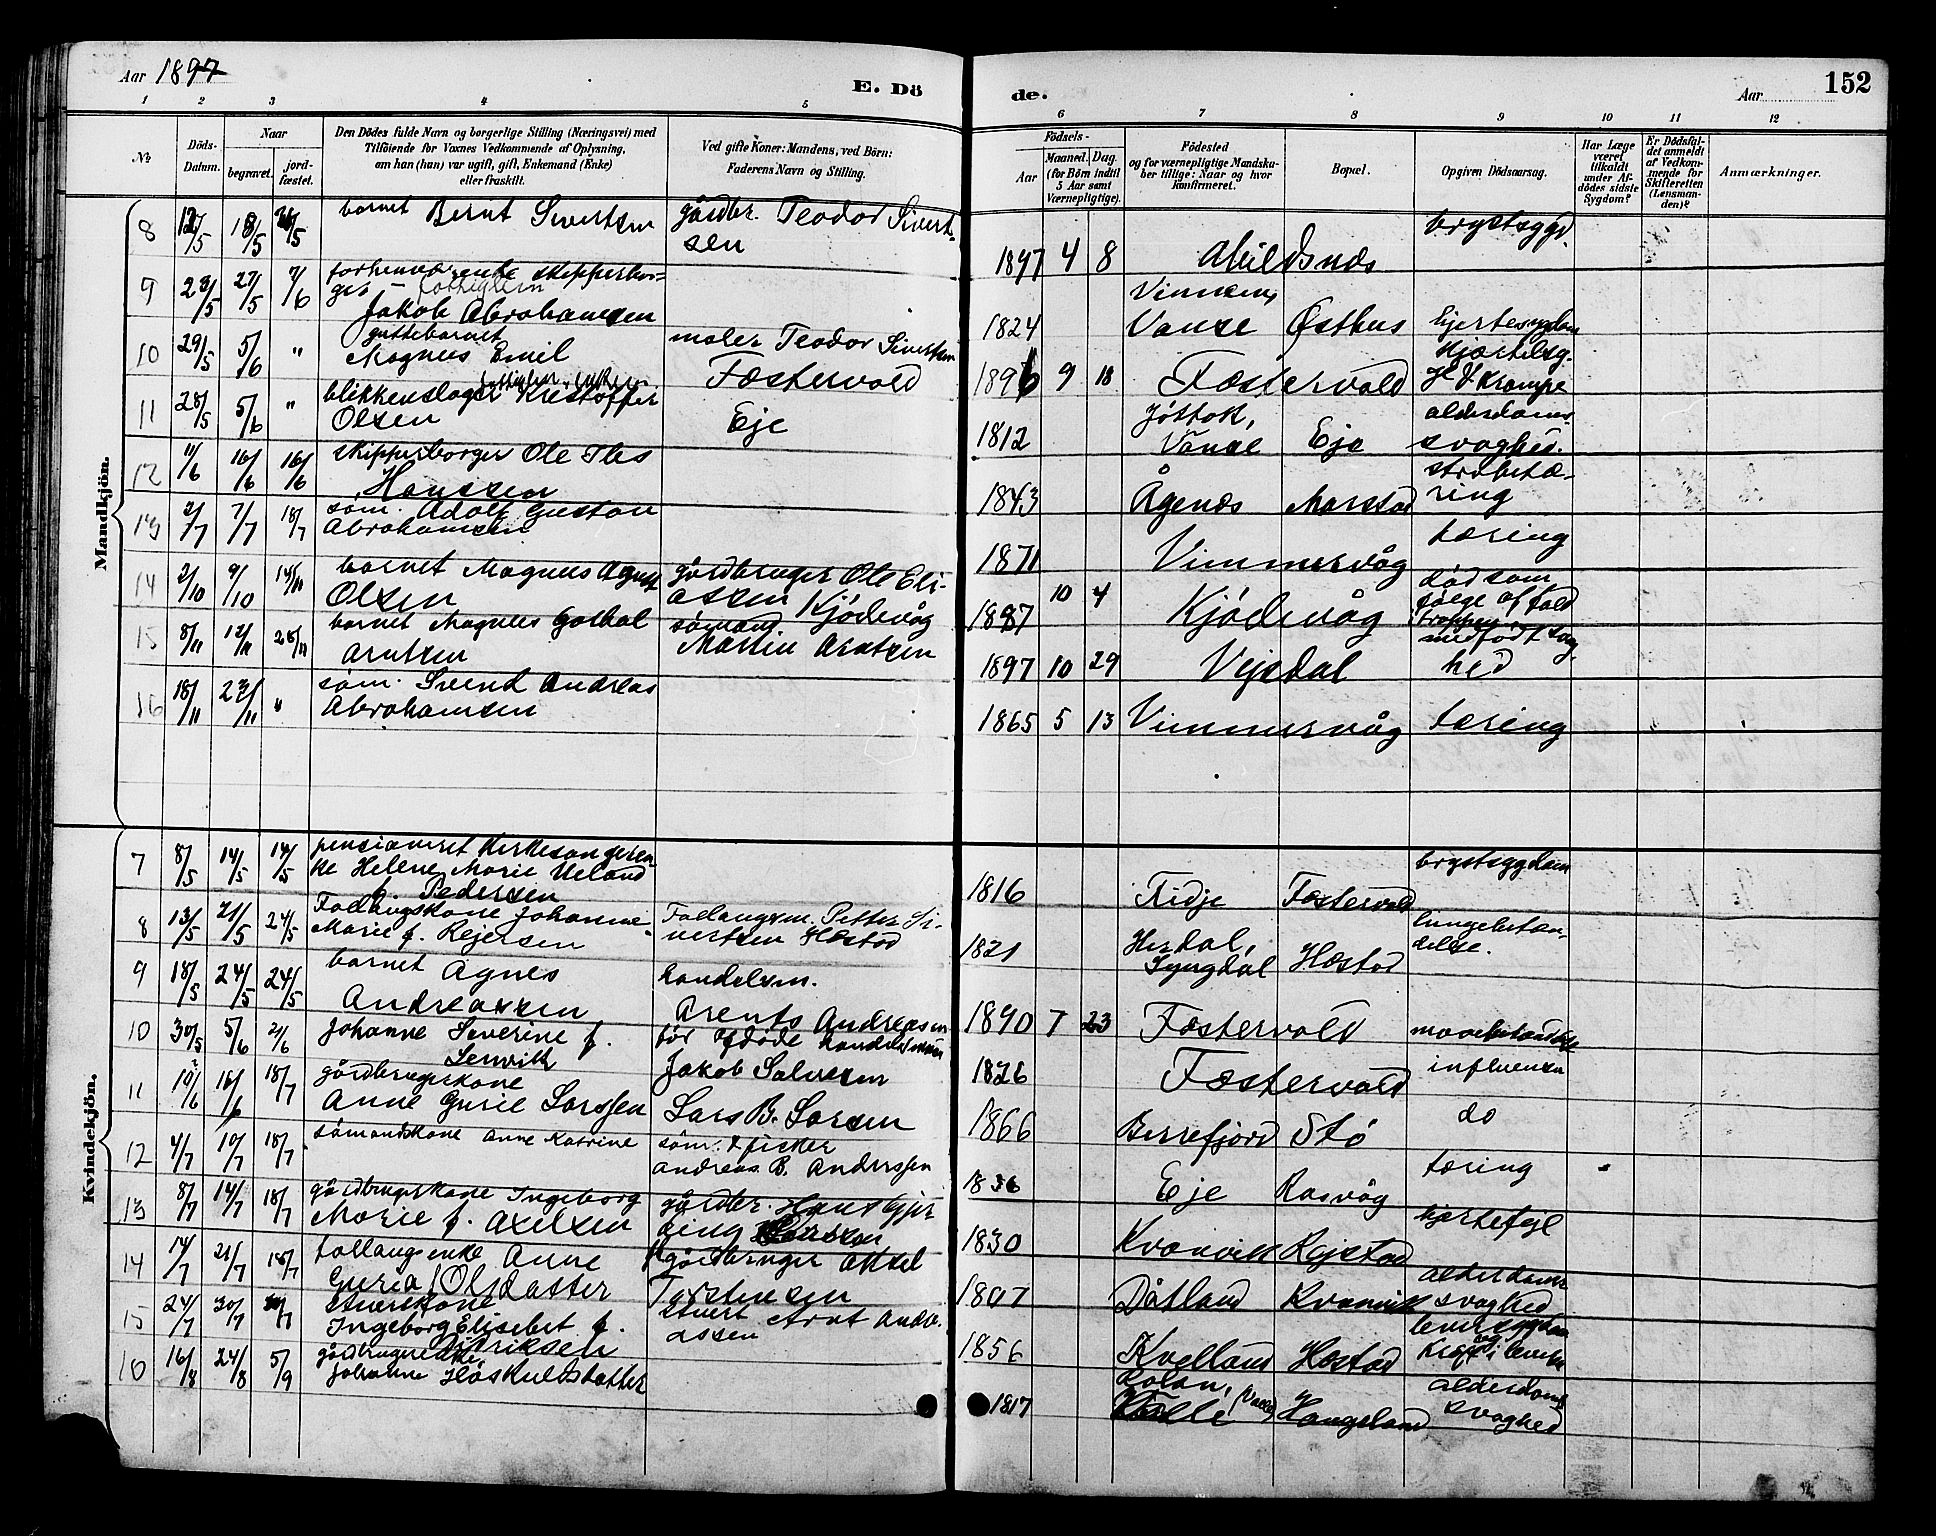 Aar 1897
E. Dö
de.
Aar
152
1 2 3 4 5 6 7 8 9 10 11 12
No
Döds-
Datum.
Naar
begravet.
jord-
fæstet.
Den Dödes fulde Navn og borgerlige Stilling (Næringsvei) med
Tilföiende for Voxnes Vedkommende af Oplysning,
om han (hun) var ugift, gift, Enkemand (Enke)
eller fraskilt.
Ved gifte Koner: Mandens, ved Börn:
Faderens Navn og Stilling.
Födsels-
Aar
Maaned. Dag.
(for Börn indtil
5 Aar samt
Værnepligtige).
Födested
og for værnepligtige Mandska-
ber tillige: Naar og hvor
konfirmeret.
Bopæl.
Opgiven Dödsaarsag.
Har Læge
været
tilkaldt
under Af-
dödes sidste
Sygdom?
Er Dödsfal-
det anmeldt
af Vedkom-
mende for
Skifteretten
(Lensman-
den)?
Anmærkninger.
Mandkjön.
8 12/5 18/5 barnet Bernt Sivertsen gårdbr. Teodor Sivert-
sen 1897 4 8 Mildsnæs brystsygd.
9 23/5 27/5 7/6 forhenværende skipperbor-
ger
Jakob Abrahamsen 1824 Vanse Østhus hjertesygdom
10 29/5 5/6 " guttebarnet
Magnus Emil maler Teodor Sivertsen
Fæstervold 1896 9 18 Fæstervold Krampe
11 28/5 5/6 " blikkenslager Kristoffer
Olsen Eje 1812 Vanse Eje alderdoms-
svaghed.
12 11/6 16/6 16/6 skipperborger Ole Ths
Hanssen 1843 Ågenæs Marstad strubetæ-
ring
13 2/7 7/7 18/7 søm. Adolf Gustav
Abrahamsen 1871 Vimmersvåg tæring
14 2/10 9/10 14/11 barnet Magnus August
Olsen gårdbruger Ole Eli-
assen Kjødevåg 1887 10 4 Kjødevåg død som
følge af fald
15 8/11 12/11 28/11 barnet Magnus Gothal
Arntsen sømand
Martin Arntsen 1897 10 29 Vejsdal medfødt svag-
hed
16 18/11 27/11 " søm. Svend Andreas
Abrahamsen 1865 5 13 Vimmersvåg tæring
Kvindekjön.
7 8/5 14/5 14/5 pensioneret kirkesangeren-
ke Helene Marie Ueland
f. Pedersen 1816 Fidje Fæstervold brystsygdom
8 13/5 21/5 24/5 Follaugskone Johanne
Marie f. Rejersen Follaugsm. Petter Si-
vertsen Hæstad 1821 Herdal,
Lyngdal Hæstad lungebetæn-
delse.
9 18/5 24/5 24/5 barnet Agnes
Andreassen handelsm.
Arents Andreasen 1890 7 23 Fæstervold mavebetændelse
10 30/5 5/6 2/6 Johanne Severine f.
Lenvik før afdøde handelsman
Jakob Salvesen 1826 Fæstervold influensa
11 10/6 16/6 18/7 gårdbrugerkone
Anne Gurie Larssen Lars B. Larsen 1866 Berrefjord Stø do
12 4/7 10/7 18/7 sømandskone Anne Katrine søm. & fisker
Andreas B. Anderssen 1836 Eje Rasvåg tæring
13 8/7 14/7 18/7 gårdbrugerkone Ingeborg
Marie f. Axelsen gårdbr. Hans 1830 Kvanvik Rejstad hjertefejl
14 14/7 21/7 18/7 follaugsenke Anne
Guria Olsdatter gårdbruger Aksel
Torstensen 1807 Dåtland Kvanvik alderdoms
svaghed
15 24/7 30/7 30/7 stuertkone
Ingeborg Elisebet f.
Didriksen stuert Arnt Andre-
assen 1856 Kvelland Hæstad leversygdom
16 16/8 24/8 5/9 gårdbrugerenke
Johanne Høskuldsdatter 1817 (Valle) Haugeland alderdoms
svaghed